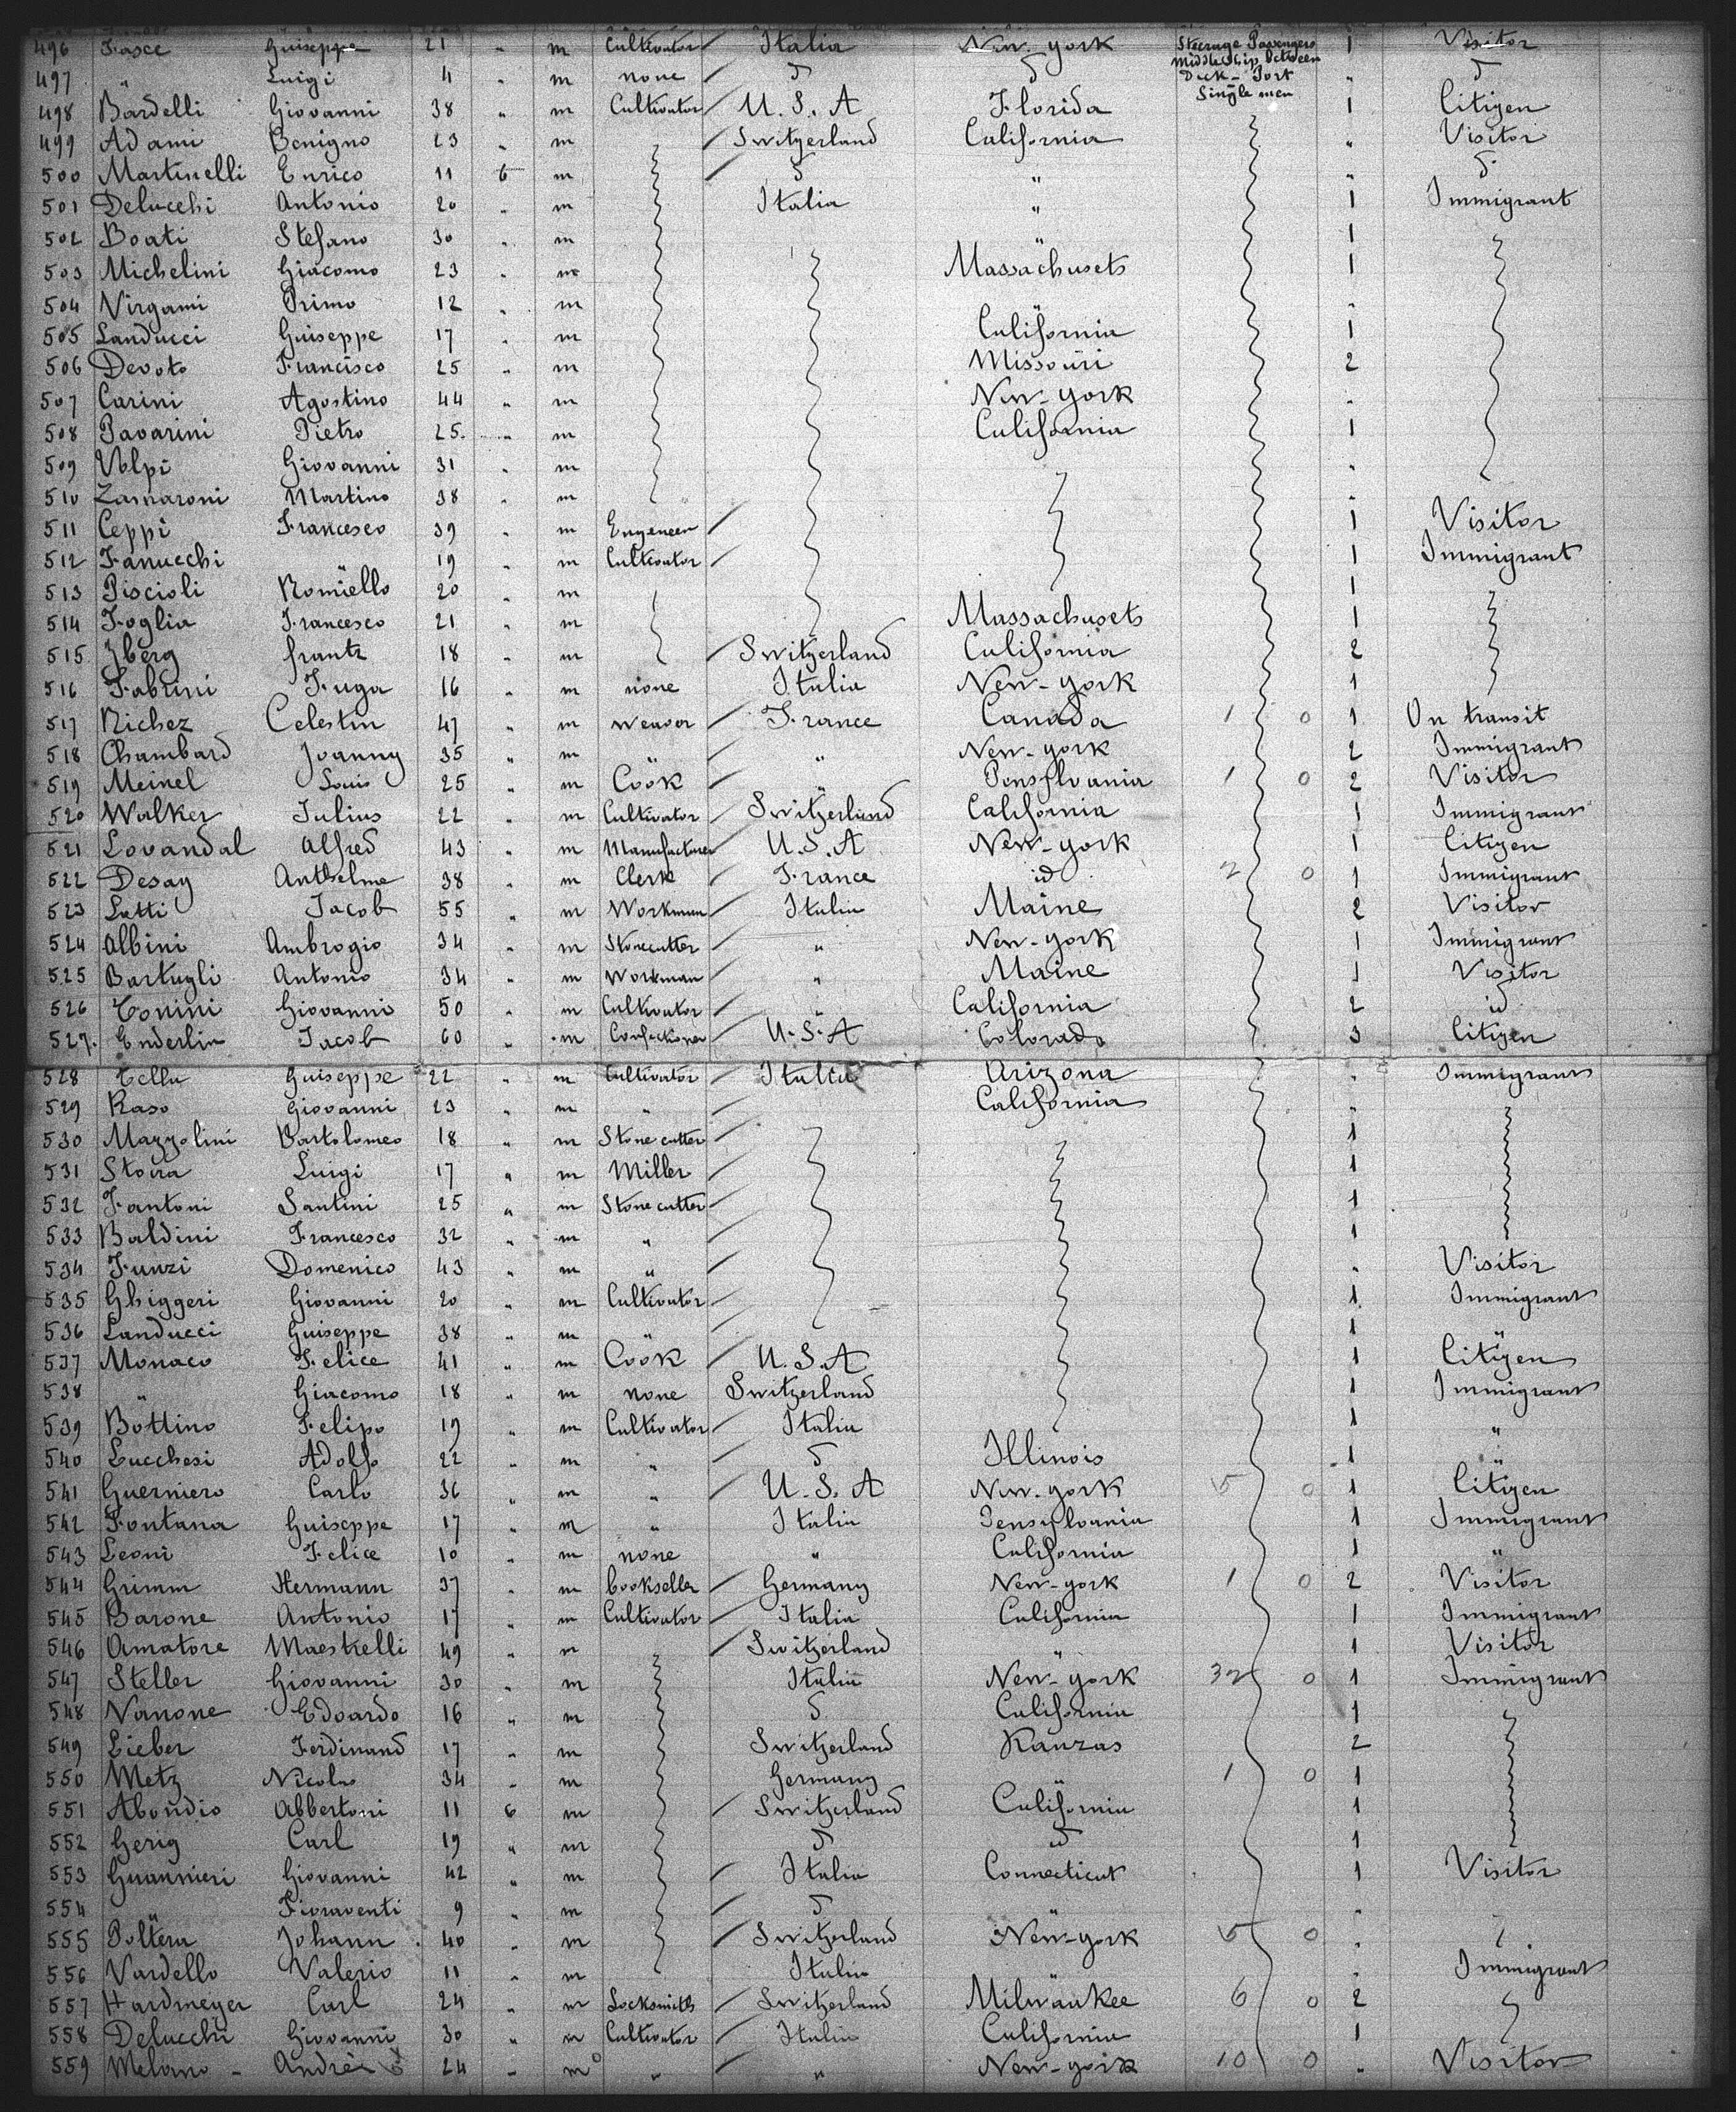 496 Fasce Guiseppe 21 " m Cultivator Italia New-york Steerage Passengers 1 Visitor
Middleship between
497 " Luigi 4 " m none d d Deck - Port " d
Single men
498 Bardelli Giovanni 38 " m Cultivator U. S. A Florida 1 Citizen
499 Adami Benigno 23 " m Switzerland California " Visitor
500 Martinelli Enrico 11 6 m d " " d
501 Delucchi Antonio 20 " m Italia " 1 Immigrant
502 Boati Stefano 30 " m " 1
503 Michelini Giacomo 23 " m Massachusets 1
504 Virgami Primo 12 " m " "
505 Landucci Guiseppe 17 " m California 1
506 Devoto Francisco 25 " m Missouri 2
507 Carini Agostino 44 " m New-york "
508 Pavarini Pietro 25 " m California 1
509 Volpi Giovanni 31 " m "
510 Zamaroni Martino 38 " m "
511 Ceppi Francesco 39 " m Engeneer 1 Visitor
512 Fanucchi " 19 " m Cultivator 1 Immigrant
513 Piscioli Romiello 20 " m 1
514 Foglia Francesco 21 " m Massachusets 1
515 Zberg frantz 18 " m Switzerland California 2
516 Fabrini Fuga 16 " m none Italia New-york 1
517 Richez Celestin 47 " m weavor France Canada 1 0 1 On transit
518 Chambard Joanny 35 " m " " New-york 2 Immigrant
519 Meinel Louis 25 " m Cook " Pensylvania 1 0 2 Visitor
520 Walker Julius 22 " m Cultivator Switzerland California 1 Immigrant
521 Lovandal Alfred 43 " m Manufacturer U.S.A New-york 1 Citizen
522 Desay Anthelme 38 " m Clerk France id 2 0 1 Immigrant
523 Latti Jacob 55 " m Workman Italia Maine 2 Visitor
524 Albini Ambrogio 34 " m Stonecutter " New-york 1 Immigrant
525 Bartugli Antonio 34 " m Workman " Maine 1 Visitor
526 Tonini Giovanni 50 " m Cultivator " California 2 id
527. Enderlin Jacob 60 " m Confectioner U.S.A Colorado 3 Citizen
528 Cella Guiseppe 22 " m Cultivator Italia Arizona " Immigrant
529 Raso Giovanni 23 " m " California "
530 Mazzolini Bartolomeo 18 " m Stone cutter 1
531 Stoira Luigi 17 " m Miller 1
532 Fantoni Santini 25 " m Stone cutter 1
533 Baldini Francesco 32 " m " 1
534 Funzi Domenico 43 " m " " Visitor
535 Ghiggeri Giovanni 20 " m Cultivator 1 Immigrant
536 Landucci Guiseppe 38 " m " 1 "
537 Monaco Felice 41 " m Cook U.S.A 1 Citizen
538 " Giacomo 18 " m none Switzerland 1 Immigrant
539 Bottino Felipo 19 " m Cultivator Italia 1 "
540 Lucchesi Adolfo 22 " m " d Illinois 1 "
541 Guerniero Carlo 36 " m " U. S. A New-york 15 0 1 Citizen
542 Fontana Guiseppe 17 " m " Italia Pensylvania 1 Immigrant
543 Leoni Felice 10 " m none " California 1 "
544 Grimm Hermann 37 " m bookseller Germany New-york 1 0 2 Visitor
545 Barone Antonio 17 " m Cultivator Italia California 1 Immigrant
546 Amatore Maeskelli 49 " m Switzerland " 1 Visitor
547 Steller Giovanni 30 " m Italia New-york 32 0 1 Immigrant
548 Vanone Edoardo 16 " m d California 1
549 Lieber Ferdinand 17 " m Switzerland Kanzas 2
550 Metz Nicolas 34 " m Germany " 1 0 1
551 Abondio Abbertoni 11 6 m Switzerland California 1
552 Gerig Carl 19 " m d id 1
553 Guannieri Giovanni 42 " m Italia Connecticut 1 Visitor
554 " Fioraventi 9 " m d " "
555 Poltera Johann 40 " m Switzerland New-york 15 0 "
556 Vardello Valerio 11 " m Italia " " Immigrant
557 Hardmeyer Carl 24 " m Locksmith Switzerland Milwaukee 6 0 2
558 Delucchi Giovanni 30 " m Cultivator Italia California 1
559 Melano - Andrè 24 " m " " New-york 10 0 " Visitor